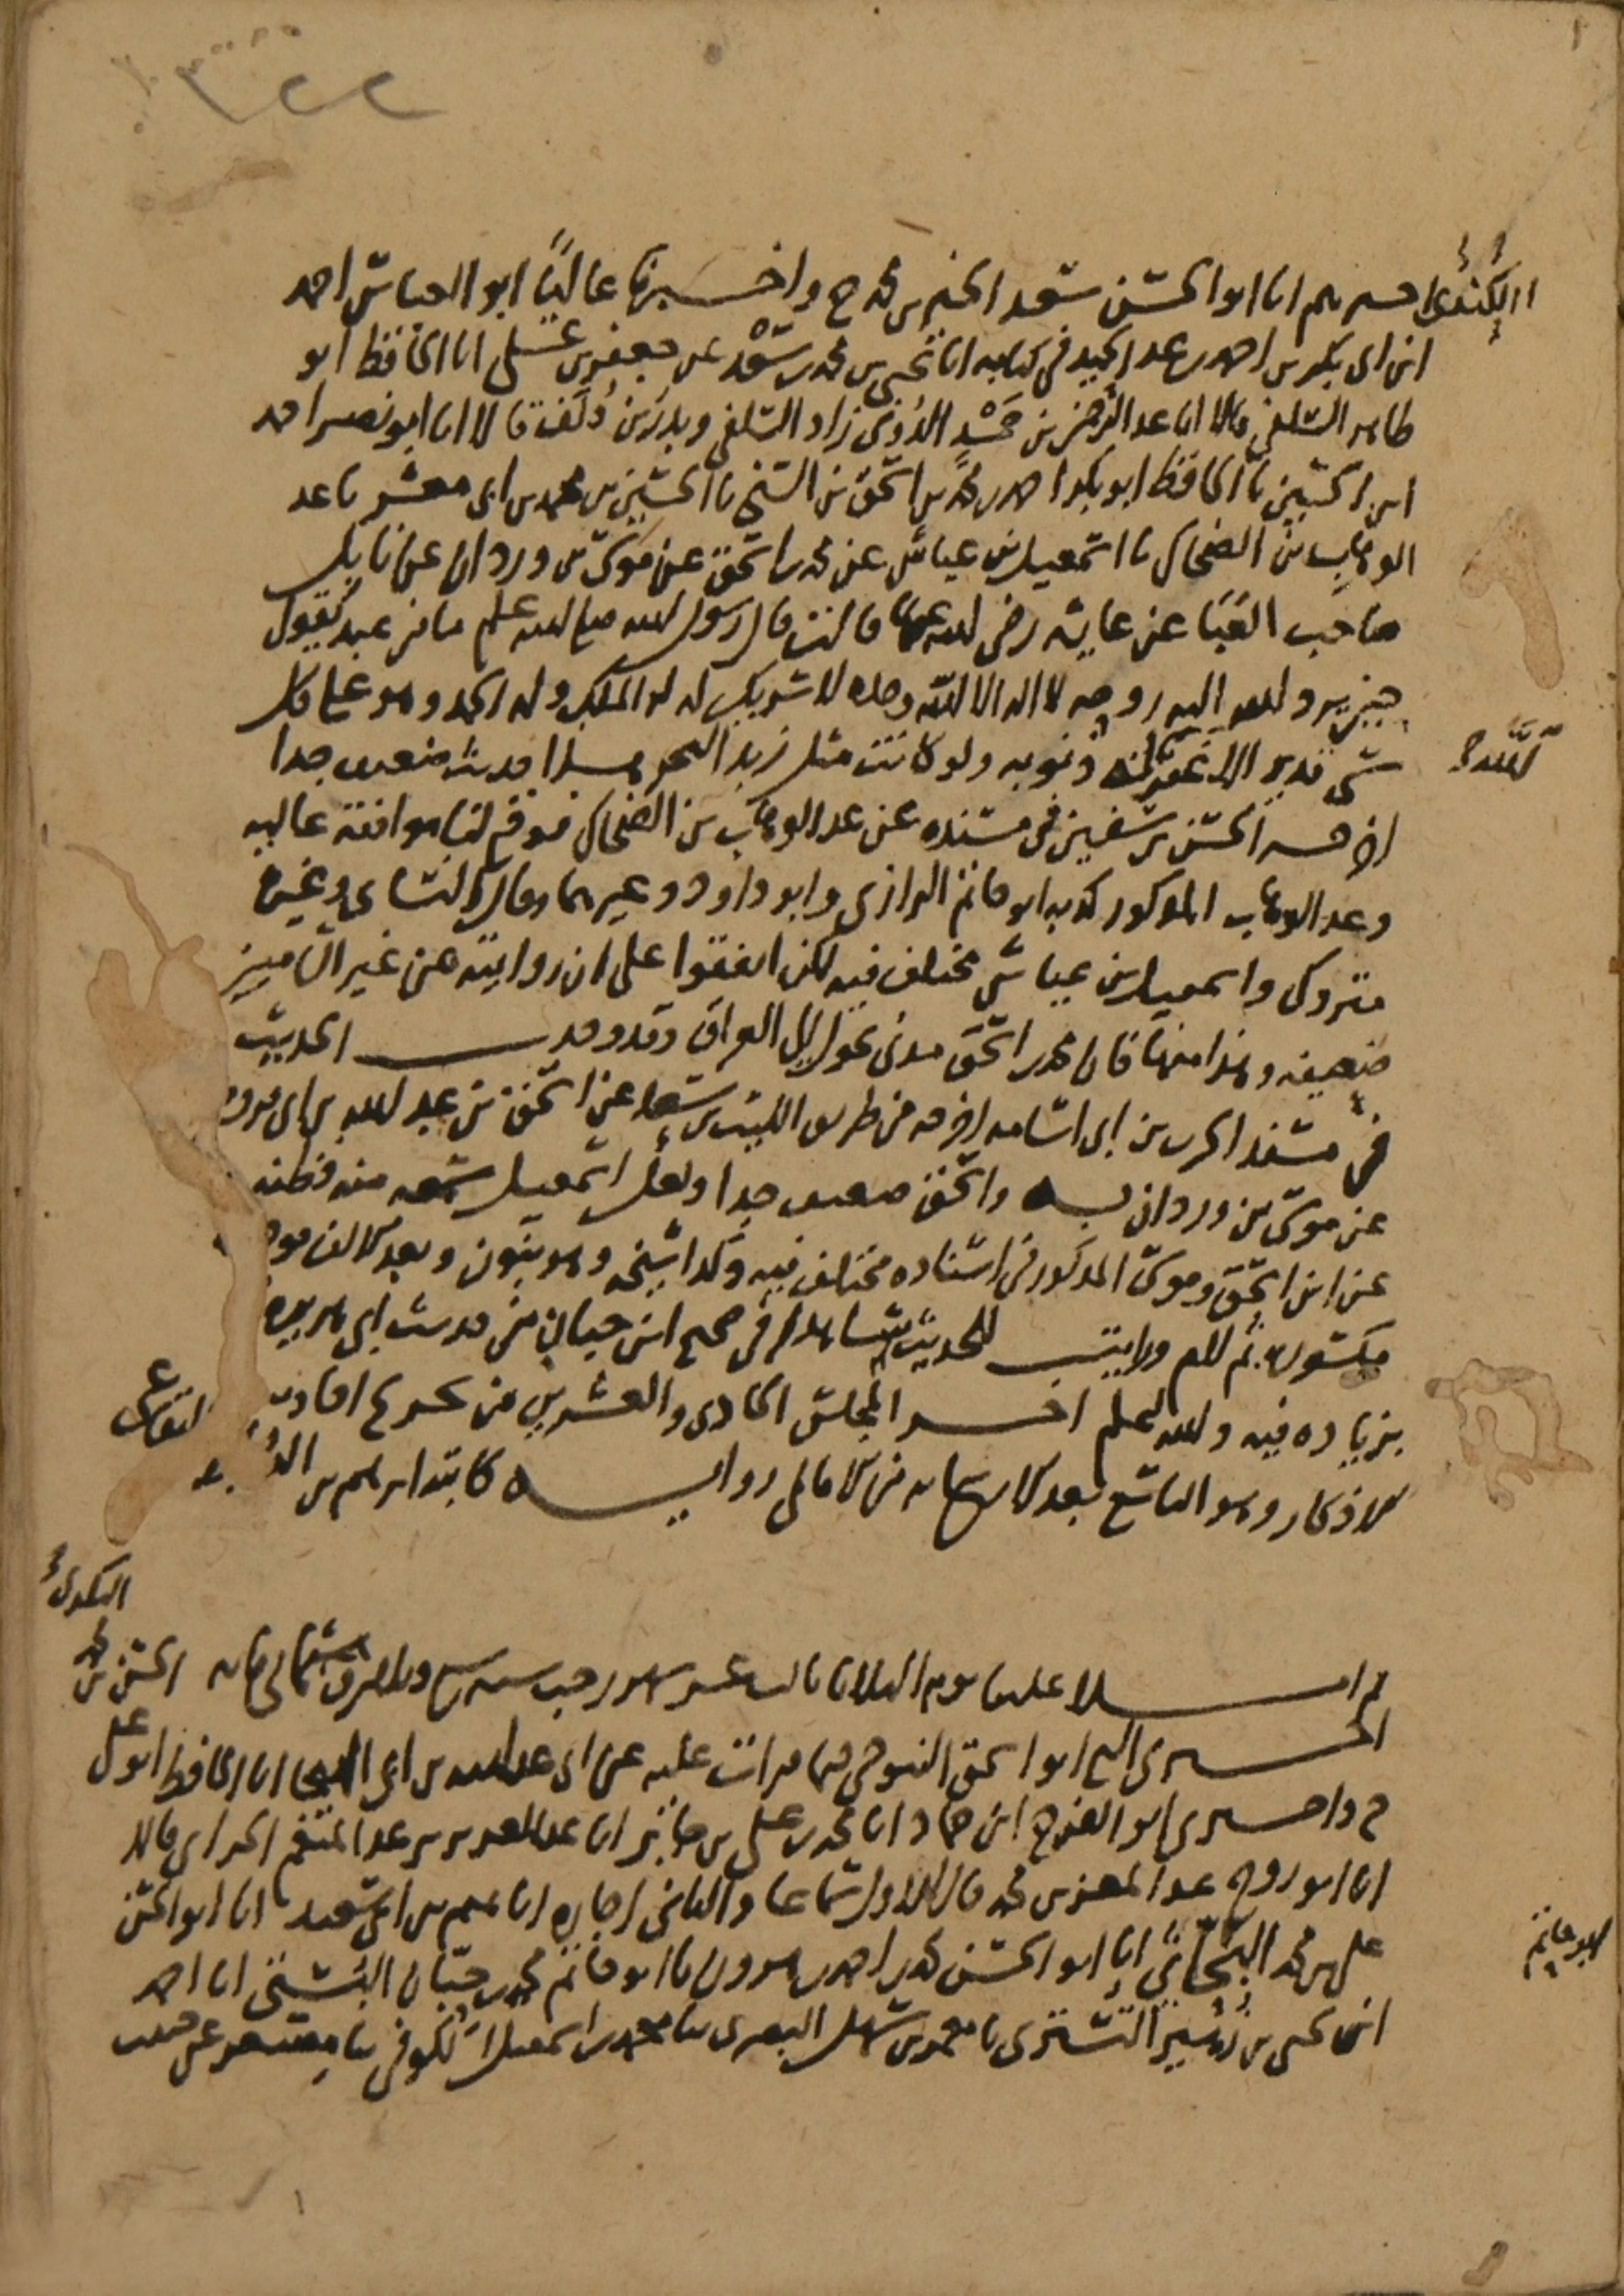 ٣٢٢
الكندي اخبرهم انا ابو الحسن سعد الخير بن محمد ح واخبرنا عاليًا ابو العباس احمد
ابن ابي بكر بن احمد بن عبد الحميد في كتابه انا يحيى بن محمد بن سعد عن جعفر بن علي انا الحافظ ابو
طاهر السلفي قالا انا عبد الرحمن بن حَمْد الدوني زاد السلفي وبدر بن دلف قالا انا ابو نصر احمد
ابن الحسين نا الحافظ ابو بكر احمد بن محمد بن اسحق بن السني نا الحسين بن محمد بن ابي معشر نا عبد
الوهاب بن الضحاك نا اسمعيل بن عياش عن محمد بن اسحق عن موسى بن وردان عن نابل
صاحب العَبَا عن عايشة رضي الله عنها قالت قال رسول الله صلى الله عليه وسلم ما من عبد يقول
حين يرد الله اليه روحه لا اله الا الله وحده لا شريك له له الملك وله الحمد وهو على كل
شي قدير الا غفر الله ذنوبه ولو كانت مثل زبد البحر هذا حديث ضعيف جدا
الله له
اخرجه الحسن بن سفين في مسنده عن عبد الوهاب بن الضحاك فوقع لنا موافقة عالية
وعبد الوهاب المذكور كذبه ابو حاتم الرازي وابو داود وغيرهما وقال النساي وغيره
متروك واسمعيل بن عياش مختلف فيه لكن اتفقوا على ان روايته عن غير الشاميين
ضعيفه وهذا منها فان محمد بن اسحق مدني تحول الى العراق وقد وجدت الحديث
في مسند الحرث بن ابي اسامه اخرجه من طريق الليث بن سعد عن اسحق بن عبد الله بن ابي فروه
عن موسى بن وردان به واسحق ضعيف جدا ولعل اسمعيل سمعه منه فظنه
عن ابن اسحق وموسى المذكور في اسناده مختلف فيه وكذا شيخه وهو بنون وبعد الالف موحده
مكسوره ثم لام ورايت للحديث شاهدا في صحيح ابن حبان من حديث ابي هريره
بزياده فيه والله اعلم اخر المجلس الحادي والعشرين من تخريج احاديث
الاذكار وهو التاسع بعد الاربعمايه من الامالي رواية كاتبه ابراهيم بن
البقاعي
ثم املا علينا يوم الثلاثا ثالث عشر شهر رجب سنه سبع وثلاثين وثماني مايه
البكري الحسن بن محمد
اخبرني الشيخ ابو اسحق التنوخي فيما قرات عليه عن ابي عبد الله بن ابي الهيجا انا الحافظ ابو علي
ح واخبرني ابو الفرج ابن حماد انا محمد بن علي بن جابر انا عبد العزيز بن عبد المنعم الحراني قالا
انا ابو روح عبد المعز بن محمد قال الاول سماعا والثاني اجازه انا تميم بن ابي سعيد انا ابو الحسن
علي بن محمد البحاثي انا ابو الحسن محمد بن احمد بن هرون نا ابو حاتم محمد بن حبان البستي انا احمد
ابو حاتم
ابن يحيى بن زهير التستري نا معمر بن سهل البصري نا محمد بن اسمعيل الكوفي نا مسعر عن حبيب